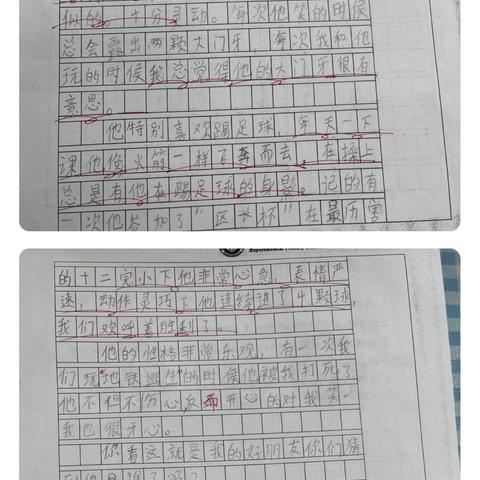 似的。十分灵动。每次他笑的时候
总会露出两颗大门牙，每次我和他
玩的时候我总觉得他的大门牙很有
意思。
他特别喜欢踢足球，每天一下
课他像火箭一样飞奔而去，在操上
总是有他在踢足球的身影。记的有
一次他参加了“区长杯”在最历害
的十二完小下他非常心急，表情严
速，动作灵巧下他连续进了4颗球，
我们欢呼着胜利了。
他的性格非常乐观，有一次我
们玩“地铁逃生”的时侯他被我打死了
他不但不分心，反而开心的对我笑
我也很开心。
你看这就是我的好朋友你们猜
到他是谁了吗？